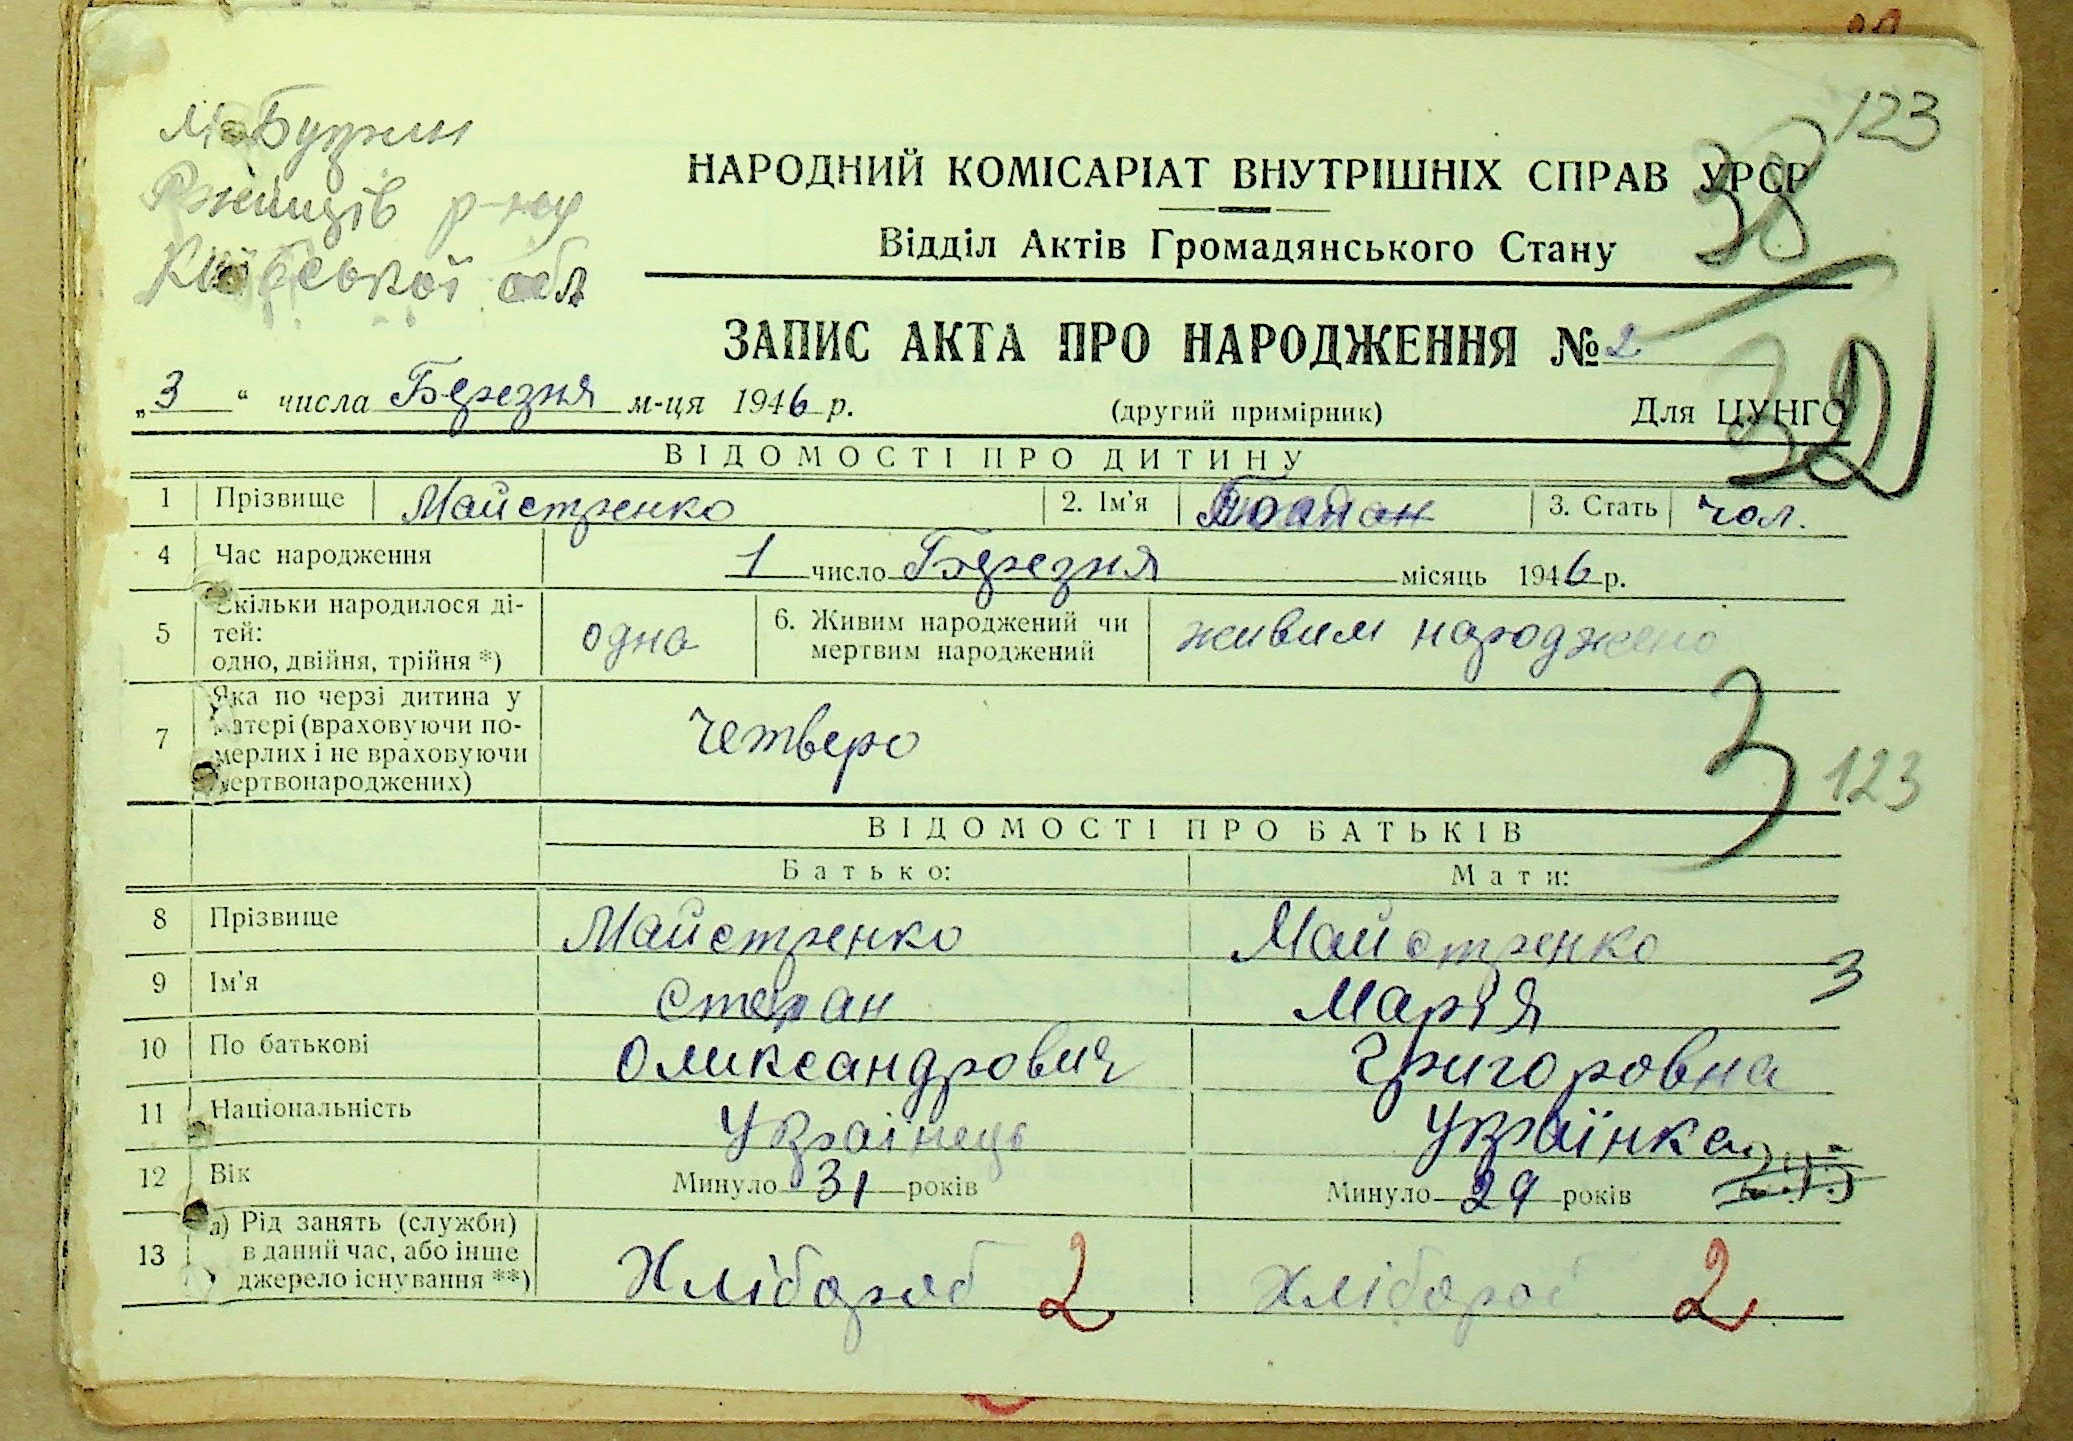 123
М. Бузкли
Ржищів р-ну
Київської обл
НАРОДНИЙ КОМІСАРІАТ ВНУТРІШНІХ СПРАВ УРСР
38
Відділ Актів Громадянського Стану
ЗАПИС АКТА ПРО НАРОДЖЕННЯ № 2
„3“ числа Березня м-ця 1946 р. (другий примірник) Для ЦУНГО
32
ВІДОМОСТІ ПРО ДИТИНУ
1 Прізвище Майстренко 2. Ім'я Богдан 3. Стать чол.
4 Час народження 1 число Березня місяць 1946 р.
5 Скільки народилося ді-
тей:
одно, двійня, трійня *) одна 6. Живим народжений чи
мертвим народжений живим народжено
7 Яка по черзі дитина у
матері (враховуючи по-
мерлих і не враховуючи
мертвонароджених) четверо
3 123
ВІДОМОСТІ ПРО БАТЬКІВ
Батько: Мати:
8 Прізвище Майстренко Майстренко
9 Ім'я Степан Марія 3
10 По батькові Олександрович Григоровна
11 Національність Українець Українка
12 Вік Минуло 31 років Минуло 29 років
13 а) Рід занять (служби)
в даний час, або інше
джерело існування **) Хлібороб 2 Хлібороб 2